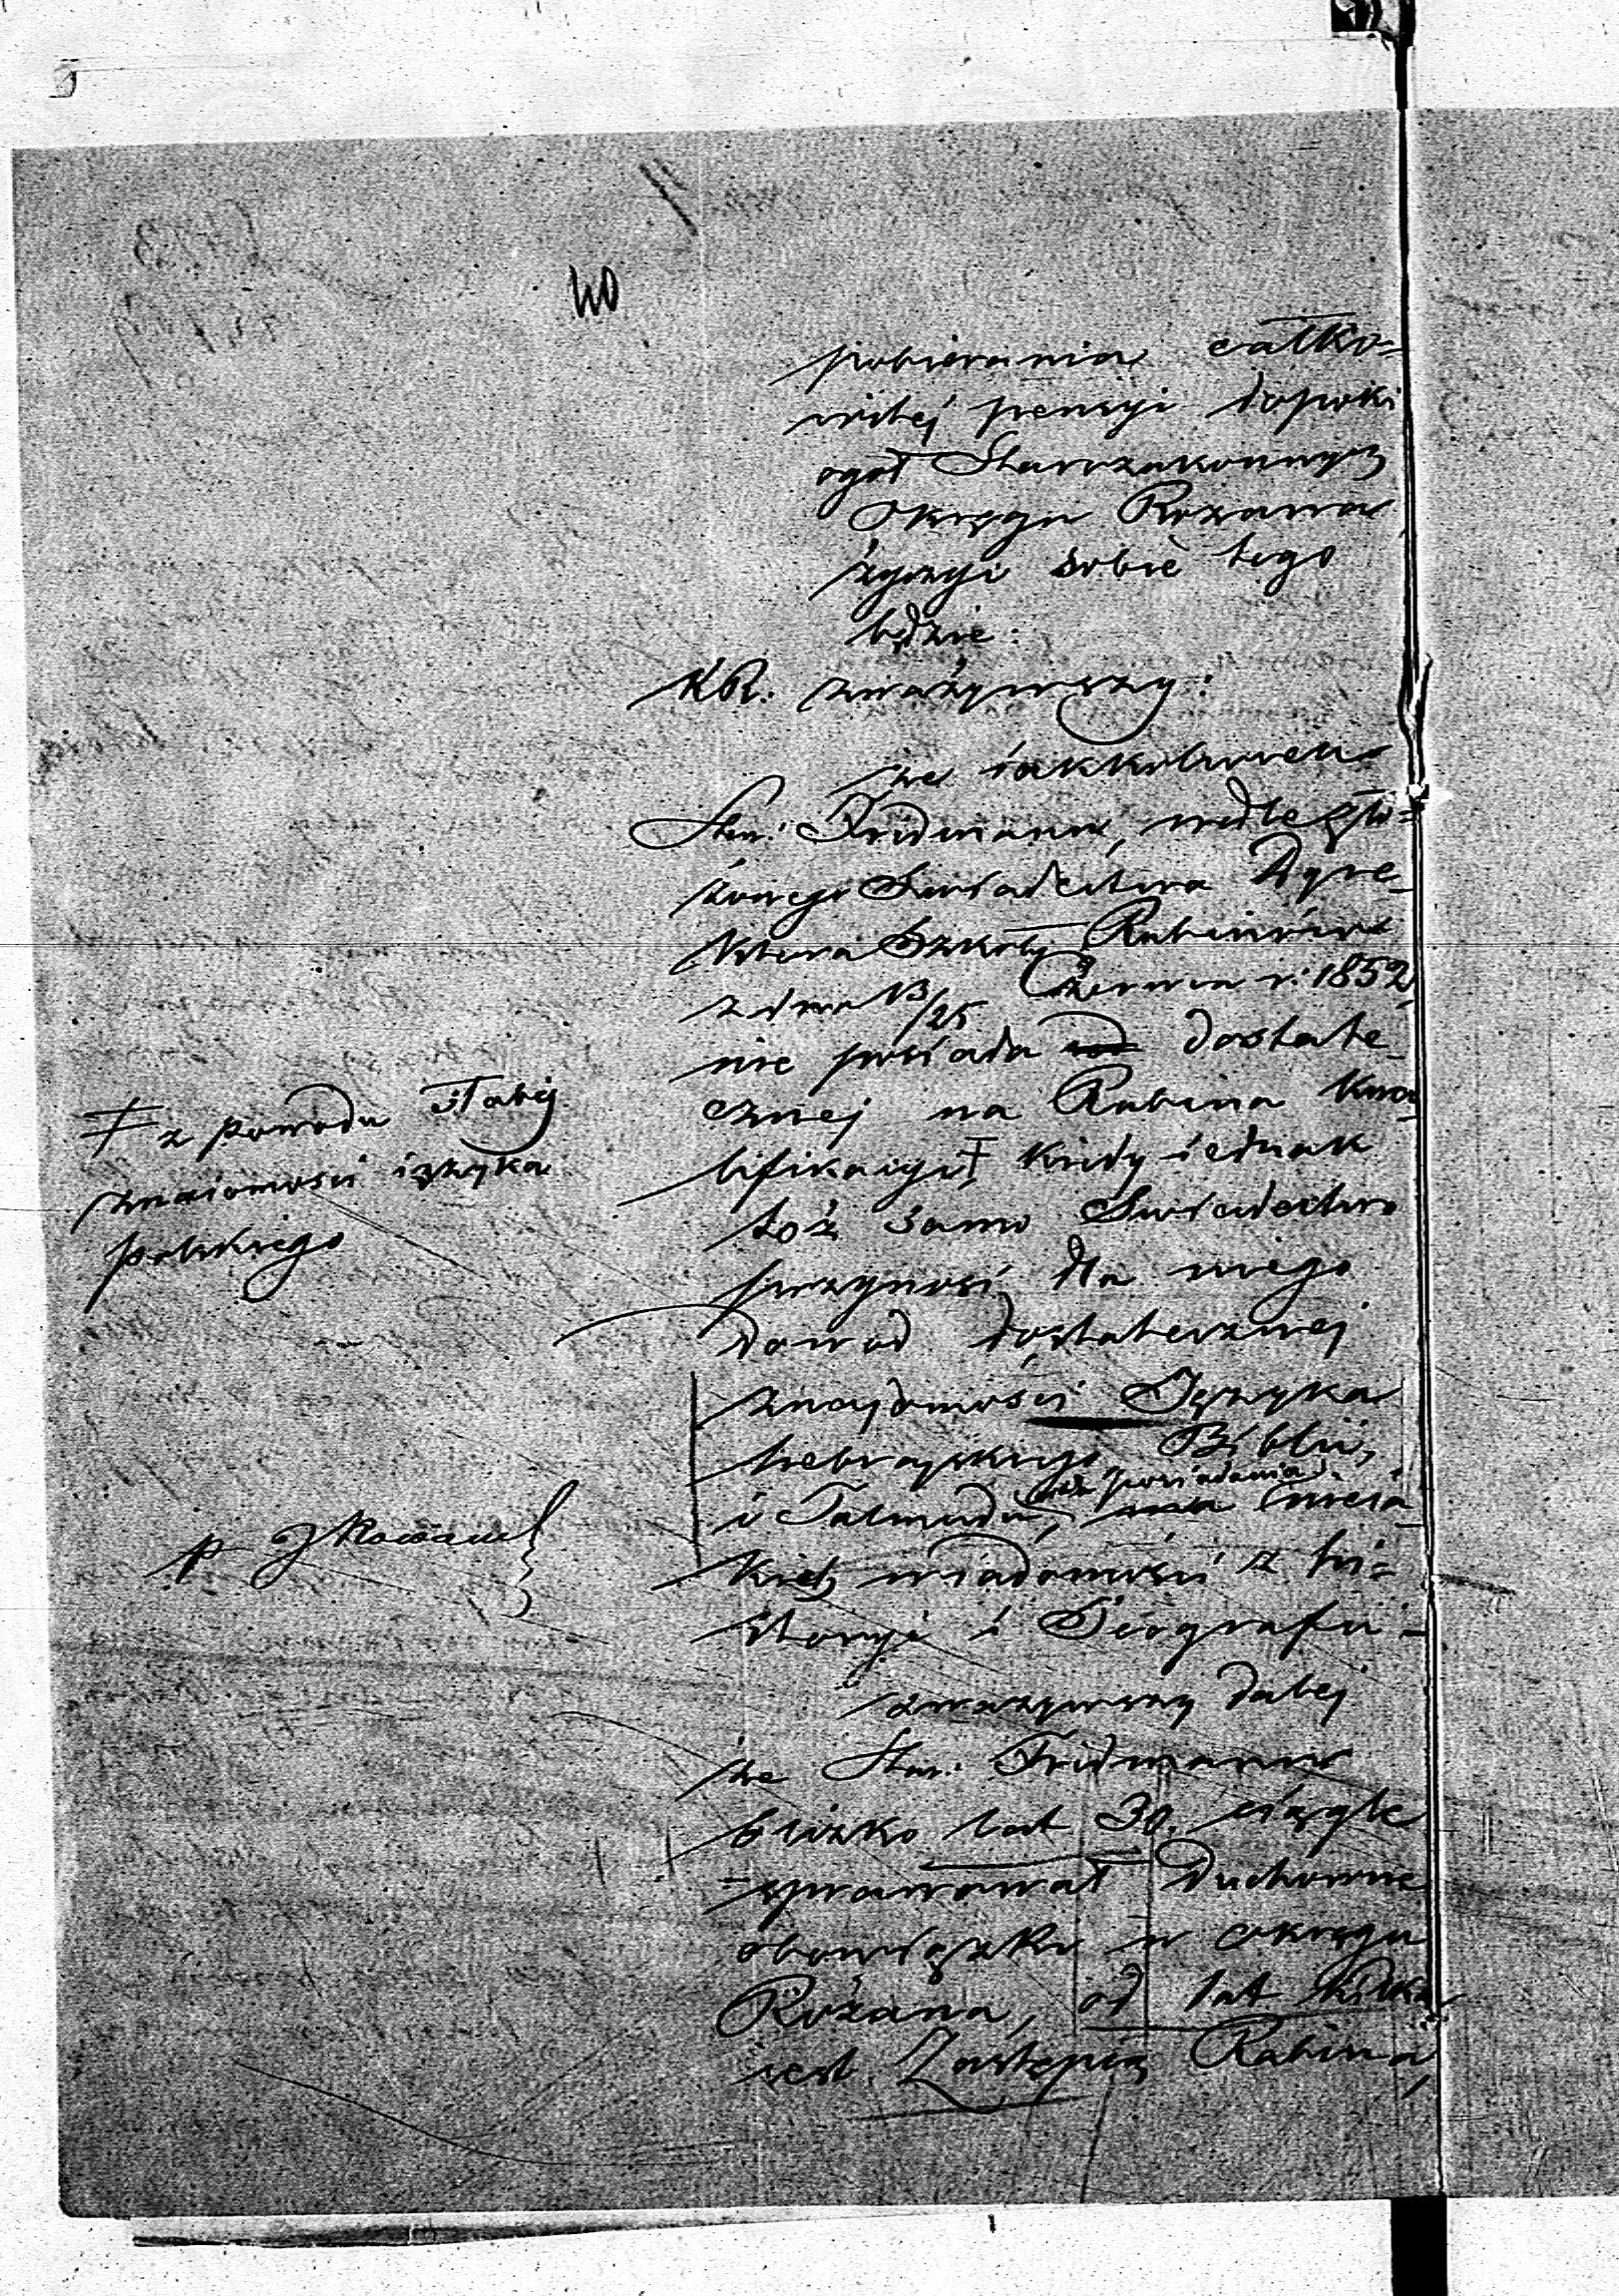 40
pobierania całko-
witej pensyi dopoki
ogoł Starozakonnych
Okręgu Rozana
życzyć sobie tego
będzie.
KR. zważywszy:
że iakkolwiek
Star: Fridmann, wedle zło-
żonego Swiadectwa Dyre-
ktora Szkoły Rabinów
z dnia 13/25 Czerwca r: 1852,
nie posiada dostate-
cznej na Rabina kwa-
lifikacyi ‡ kiedy iednak
toż samo Swiadectwo
przynosi dla niego
dowod dostatecznej
znajomości Języka
hebrajskiego, Biblii,
posiadania
i Talmudu, nieia-
kich wiadomości z hi-
storyi i Geografii -
zważywszy dalej
że Star: Fridmann
blizko lat 30. ciągle
sprawował Duchowne
obowiązki w okręgu
Rożana, od lat kilku
iest Zastępcą Rabina,
‡ z powodu słabej
znaiomości ięzyka
polskiego